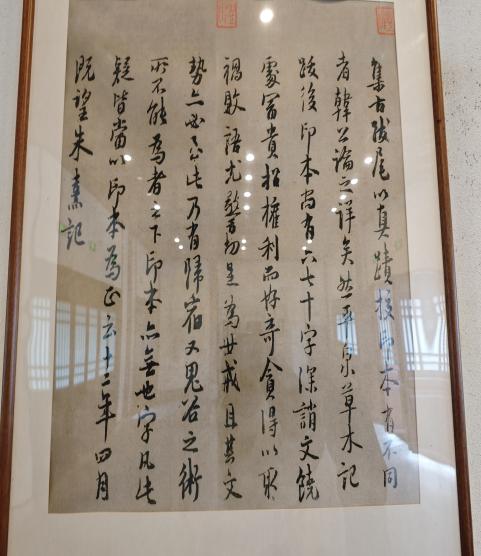 集古跋尾以真蹟校印本有不同
者韓公論之详矣然平泉草木記
跋後印本尚有六七十字深誚文饒
處富貴招權利而好奇貪得以取
禍敗語尤警切足為世戒且其文
勢亦必至此乃有歸宿又鬼谷之術
所不能為者之下印本亦無也字凡此
疑皆當以印本為正云十二年四月
既望朱熹記